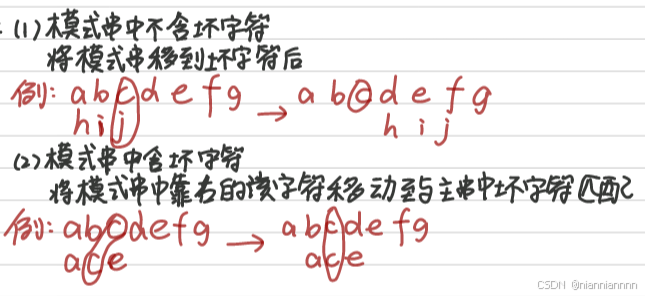 (1)模式串中不含坏字符
将模式串移到坏字符后
例: abcdefg → abcdefg
hij hij
(2)模式串中含坏字符
将模式串中靠右的该字符移动至与主串中坏字符匹配
例: abcdefg → abcdefg
ace ace
CSDN @nianniannnn